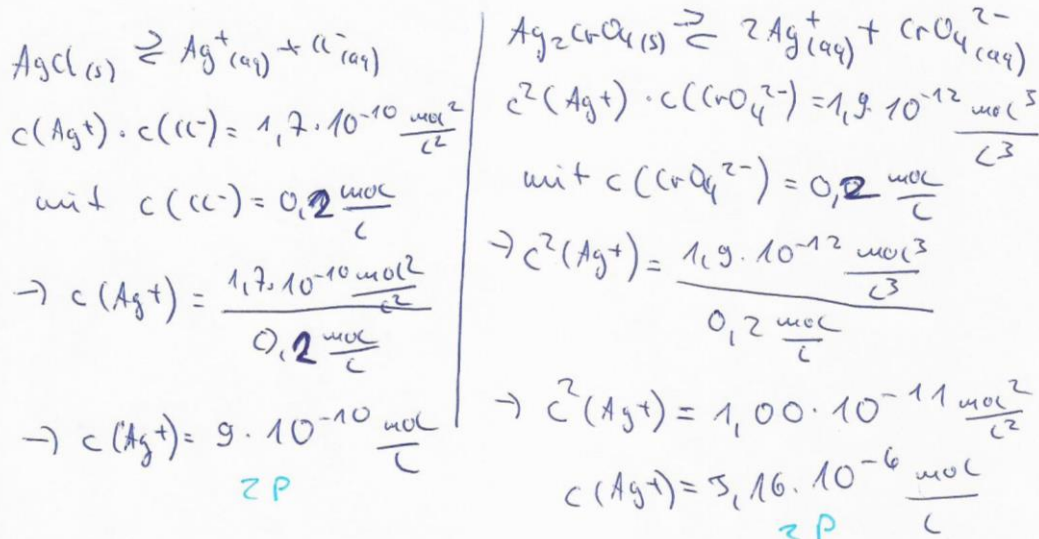 AgCl (s) ⇌ Ag⁺(aq) + Cl⁻(aq)
c(Ag⁺) · c(Cl⁻) = 1,7 · 10⁻¹⁰ mol²/l²
mit c(Cl⁻) = 0,2 mol/l
→ c(Ag⁺) = 1,7 · 10⁻¹⁰ mol²/l² / 0,2 mol/l
→ c(Ag⁺) = 9 · 10⁻¹⁰ mol/l
2 P
Ag₂CrO₄(s) ⇌ 2Ag⁺(aq) + CrO₄²⁻(aq)
c²(Ag⁺) · c(CrO₄²⁻) = 1,9 · 10⁻¹² mol³/l³
mit c(CrO₄²⁻) = 0,2 mol/l
→ c²(Ag⁺) = 1,9 · 10⁻¹² mol³/l³ / 0,2 mol/l
→ c²(Ag⁺) = 1,00 · 10⁻¹¹ mol²/l²
c(Ag⁺) = 3,16 · 10⁻⁶ mol/l
2 P